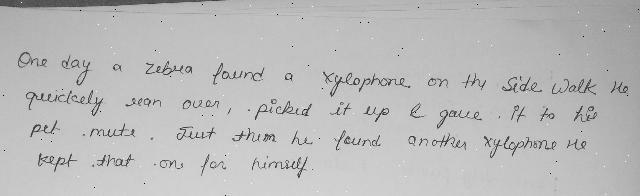 One day a zebra found a xylophone on thy side walk He
quickely ran over, picked it up & gave it to his
pet mute. Just them he found another xylophone He
kept that one for himself.